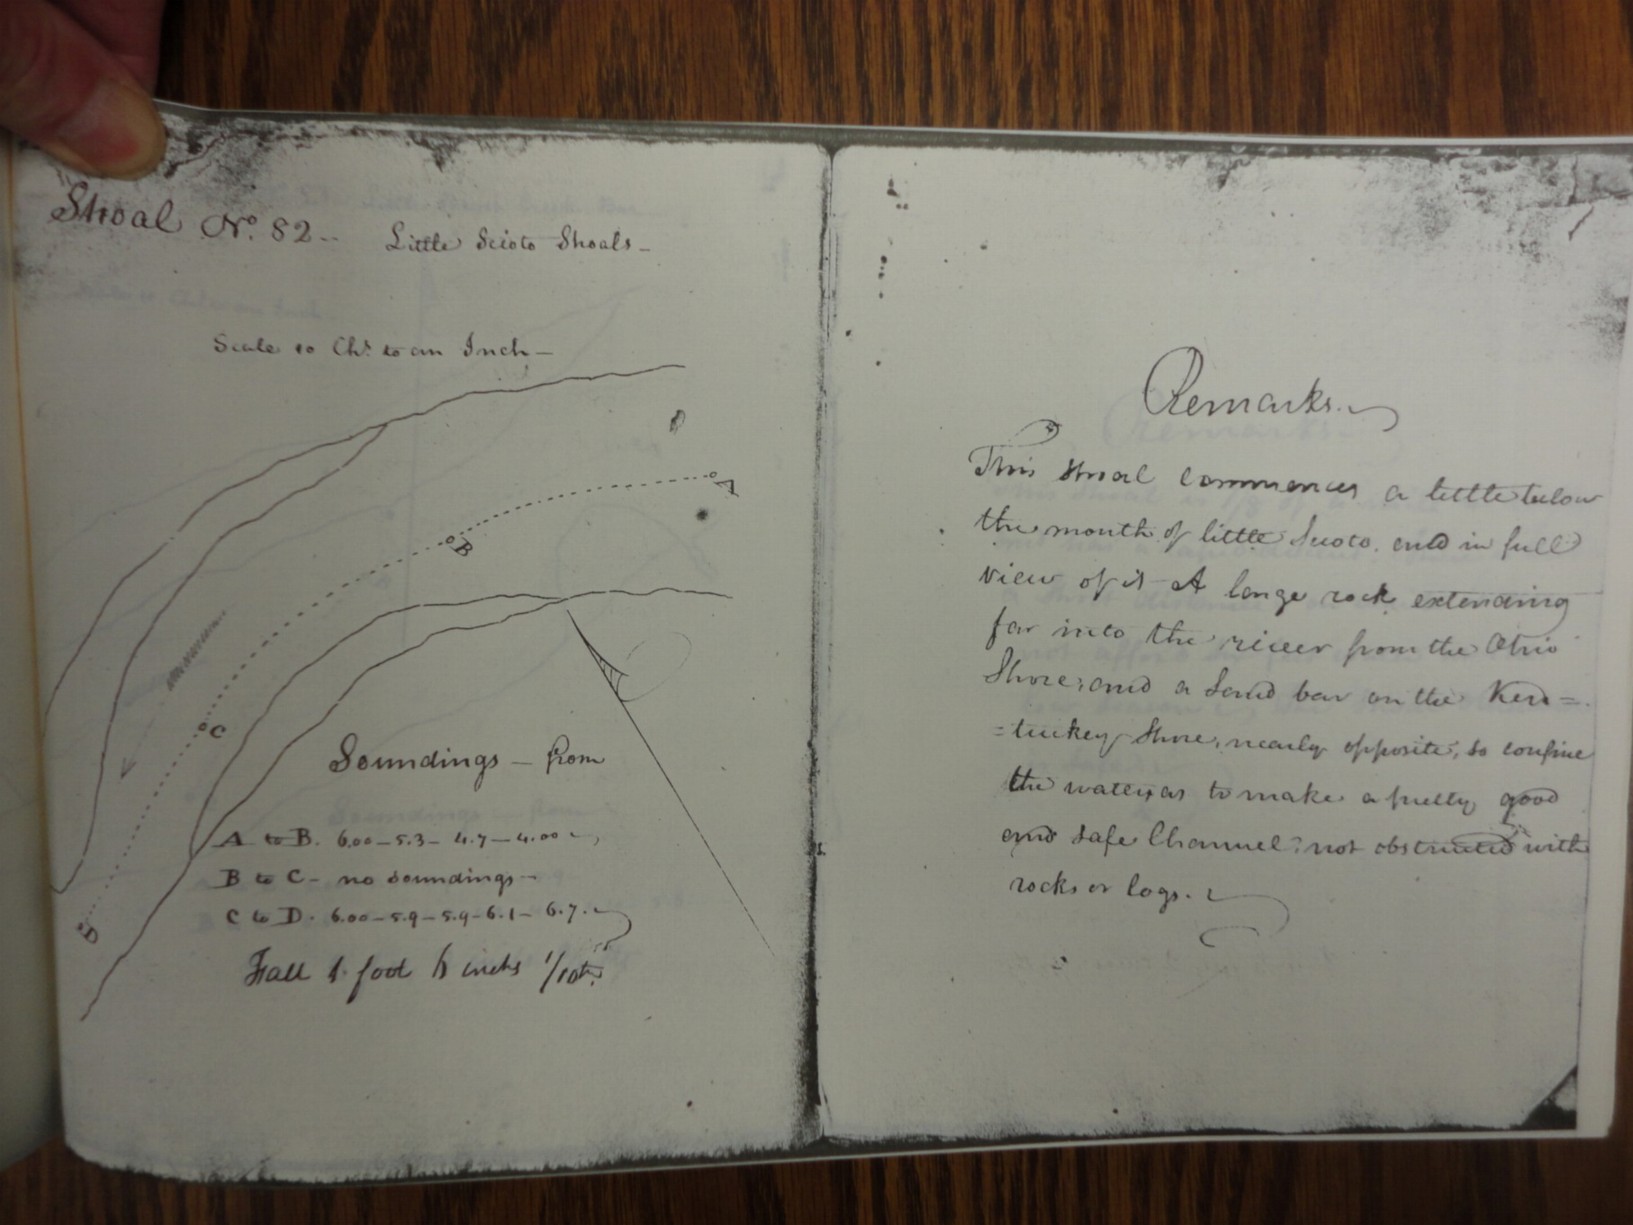 Shoal No. 82 --
Little Scioto Shoals -
Scale 10 Chs. to an Inch -
A
B
C
D
Soundings - from
A to B. 6.00 - 5.3 - 4.7 - 4.00
B to C - no soundings -
C to D. 6.00 - 5.9 - 5.9 - 6.1 - 6.7.
Fall 1 foot 6 inchs 1/10th.
Remarks.
This shoal commences a little below
the mouth of little Scioto. and in full
view of it A large rock extending
far into the river from the Ohio
Shore; and a sand bar on the Ken=
=tuckey Shore, nearly opposite, so confine
the water, as to make a pretty good
and safe Channel; not obstructed with
rocks or logs.